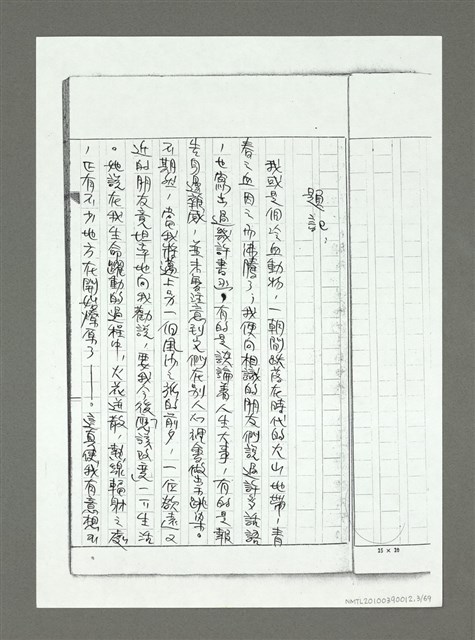 題記:
我或是個冷血動物,一朝間跌落在時代的火山地帶,青
春之血因之而沸騰了;我便向相識的朋友們說過許多話語
,也寫出過幾許書函,有的是談論着人生大事,有的是報
告身邊瑣碎,並未曾注意到它們在別人心裡會做出跳
不期然,當我將邁上另一個風沙之旅的前夕,一位欲遠又
近的朋友竟坦率地向我勸說,要我今後應該改變一下生活
。她說在我生命躍動的過程中,火花迸散,熱線輻射之處
,正有不少地方在開始燎原了——。這真使我有意想不
25 × 20
NMTL20100390012.3/69